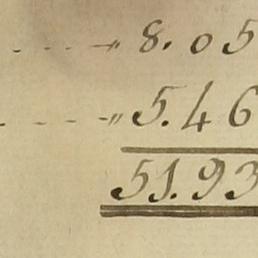 " 8.05
" 5.46
51.93